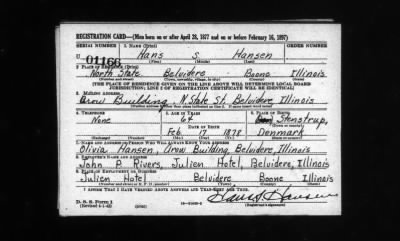 REGISTRATION CARD—(Men born on or after April 28, 1877 and on or before February 16, 1897)
SERIAL NUMBER 1. NAME (Print) ORDER NUMBER
U 01166 Hans S. Hansen
(First) (Middle) (Last)
2. PLACE OF RESIDENCE (Print)
North State Belvidere Boone Illinois
(Number and street) (Town, township, village, or city) (County) (State)
[THE PLACE OF RESIDENCE GIVEN ON THE LINE ABOVE WILL DETERMINE LOCAL BOARD
JURISDICTION; LINE 2 OF REGISTRATION CERTIFICATE WILL BE IDENTICAL]
3. MAILING ADDRESS
Crow Building, N. State St., Belvidere, Illinois
4. TELEPHONE 5. AGE IN YEARS 6. PLACE OF BIRTH
None 64 Stenstrup,
DATE OF BIRTH
Feb. 17 1878 Denmark
7. NAME AND ADDRESS OF PERSON WHO WILL ALWAYS KNOW YOUR ADDRESS
Olivia Hansen, Crow Building, Belvidere, Illinois
8. EMPLOYER'S NAME AND ADDRESS
John P. Rivers, Julien Hotel, Belvidere, Illinois
9. PLACE OF EMPLOYMENT OR BUSINESS
Julien Hotel Belvidere Boone Illinois
(Number and street or R. F. D. number) (Town) (County) (State)
I AFFIRM THAT I HAVE VERIFIED ABOVE ANSWERS AND THAT THEY ARE TRUE.
D. S. S. Form 1 Hans S. Hansen
(Revised 4-1-42) (over) (Registrant's signature)